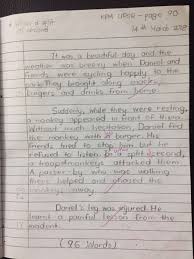 KPM UPSR - page 70
14th March
within a split
of second
It was a beautiful day and the
weather was breezy when Daniel and
friends were cycling happily to the
park. They brought along snacks,
burgers and drinks from home.
Suddenly while they were resting,
a monkey appeared in front of them.
Without much hesitation, Daniel fed
the monkey with a burger. His
friends tried to stop him but he
refused to listen. In a split second,
a troop monkeys attacked them.
A passer by who was walking
there helped and chased the
monkeys away.
Daniel's leg was injured. He
learnt a painful lesson from the
incident.
(96 words)